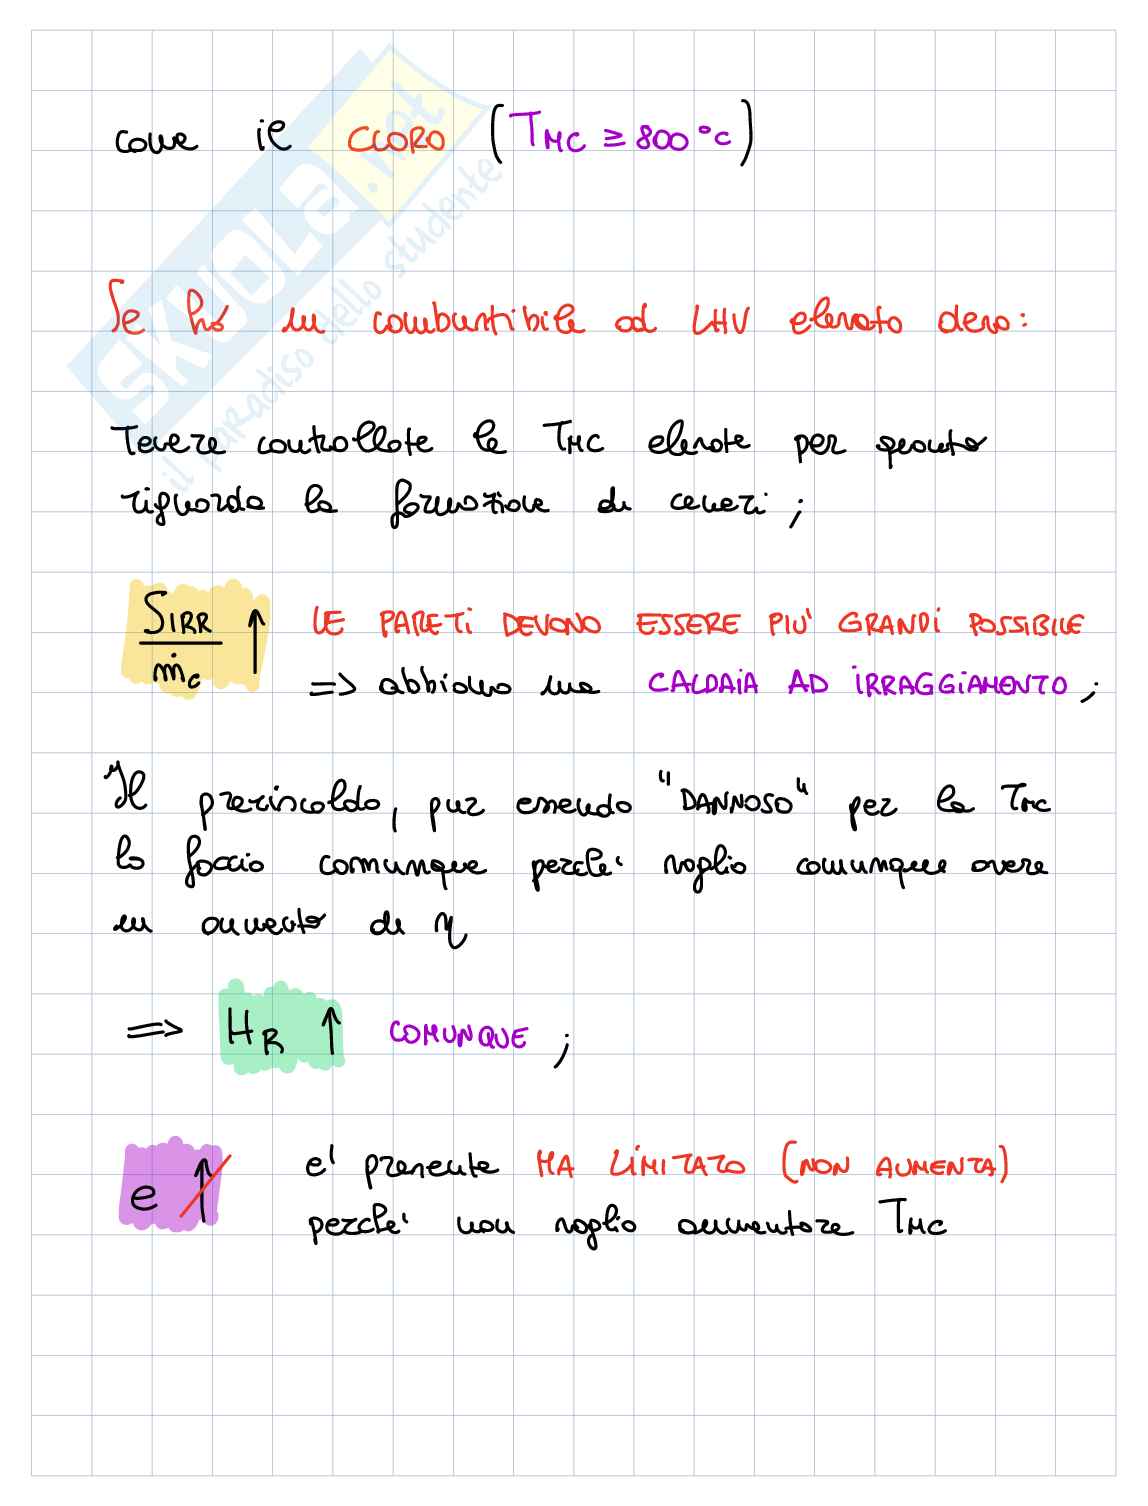 come il CLORO (TMC ≥ 800 °C)
Se ho un combustibile ad LHV elevato devo:
Tenere controllate le TMC elevate per quanto
riguarda la formazione di ceneri ;
SIRR / ṁc ↑ LE PARETI DEVONO ESSERE PIU' GRANDI POSSIBILE
=> abbiamo una CALDAIA AD IRRAGGIAMENTO ;
Il preriscaldo, pur essendo "DANNOSO" per la TMC
lo faccio comunque perche' voglio comunque avere
un aumento di η
=> HR ↑ COMUNQUE ;
e ↑ e' presente MA LIMITATO (NON AUMENTA)
perche' non voglio aumentare TMC
SKUOLA.net
il paradiso dello studente